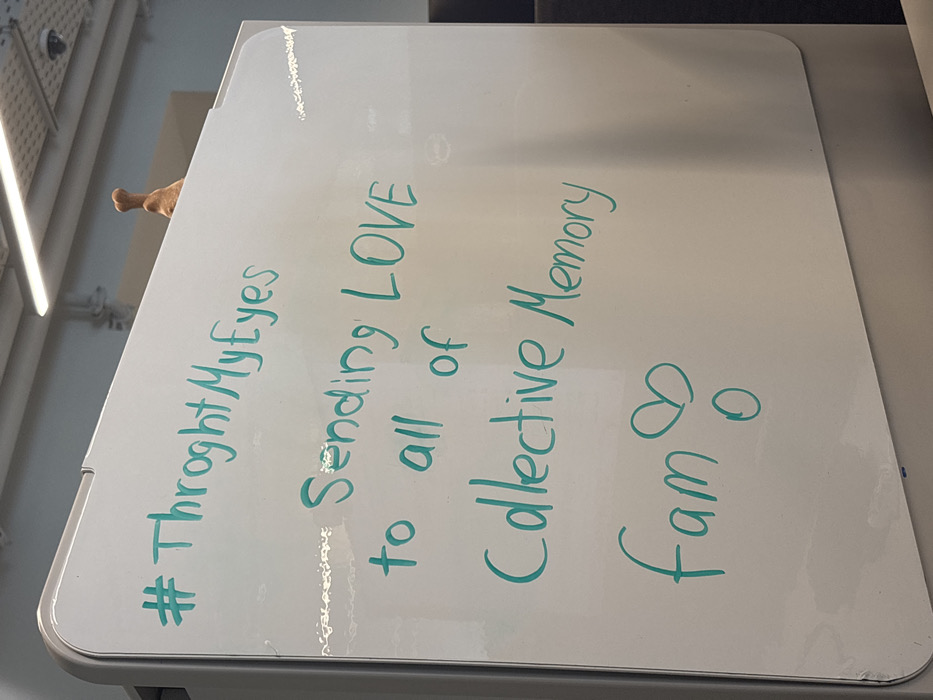 #ThroghtMyEyes
Sending LOVE
to all of
Collective Memory
fam ♡